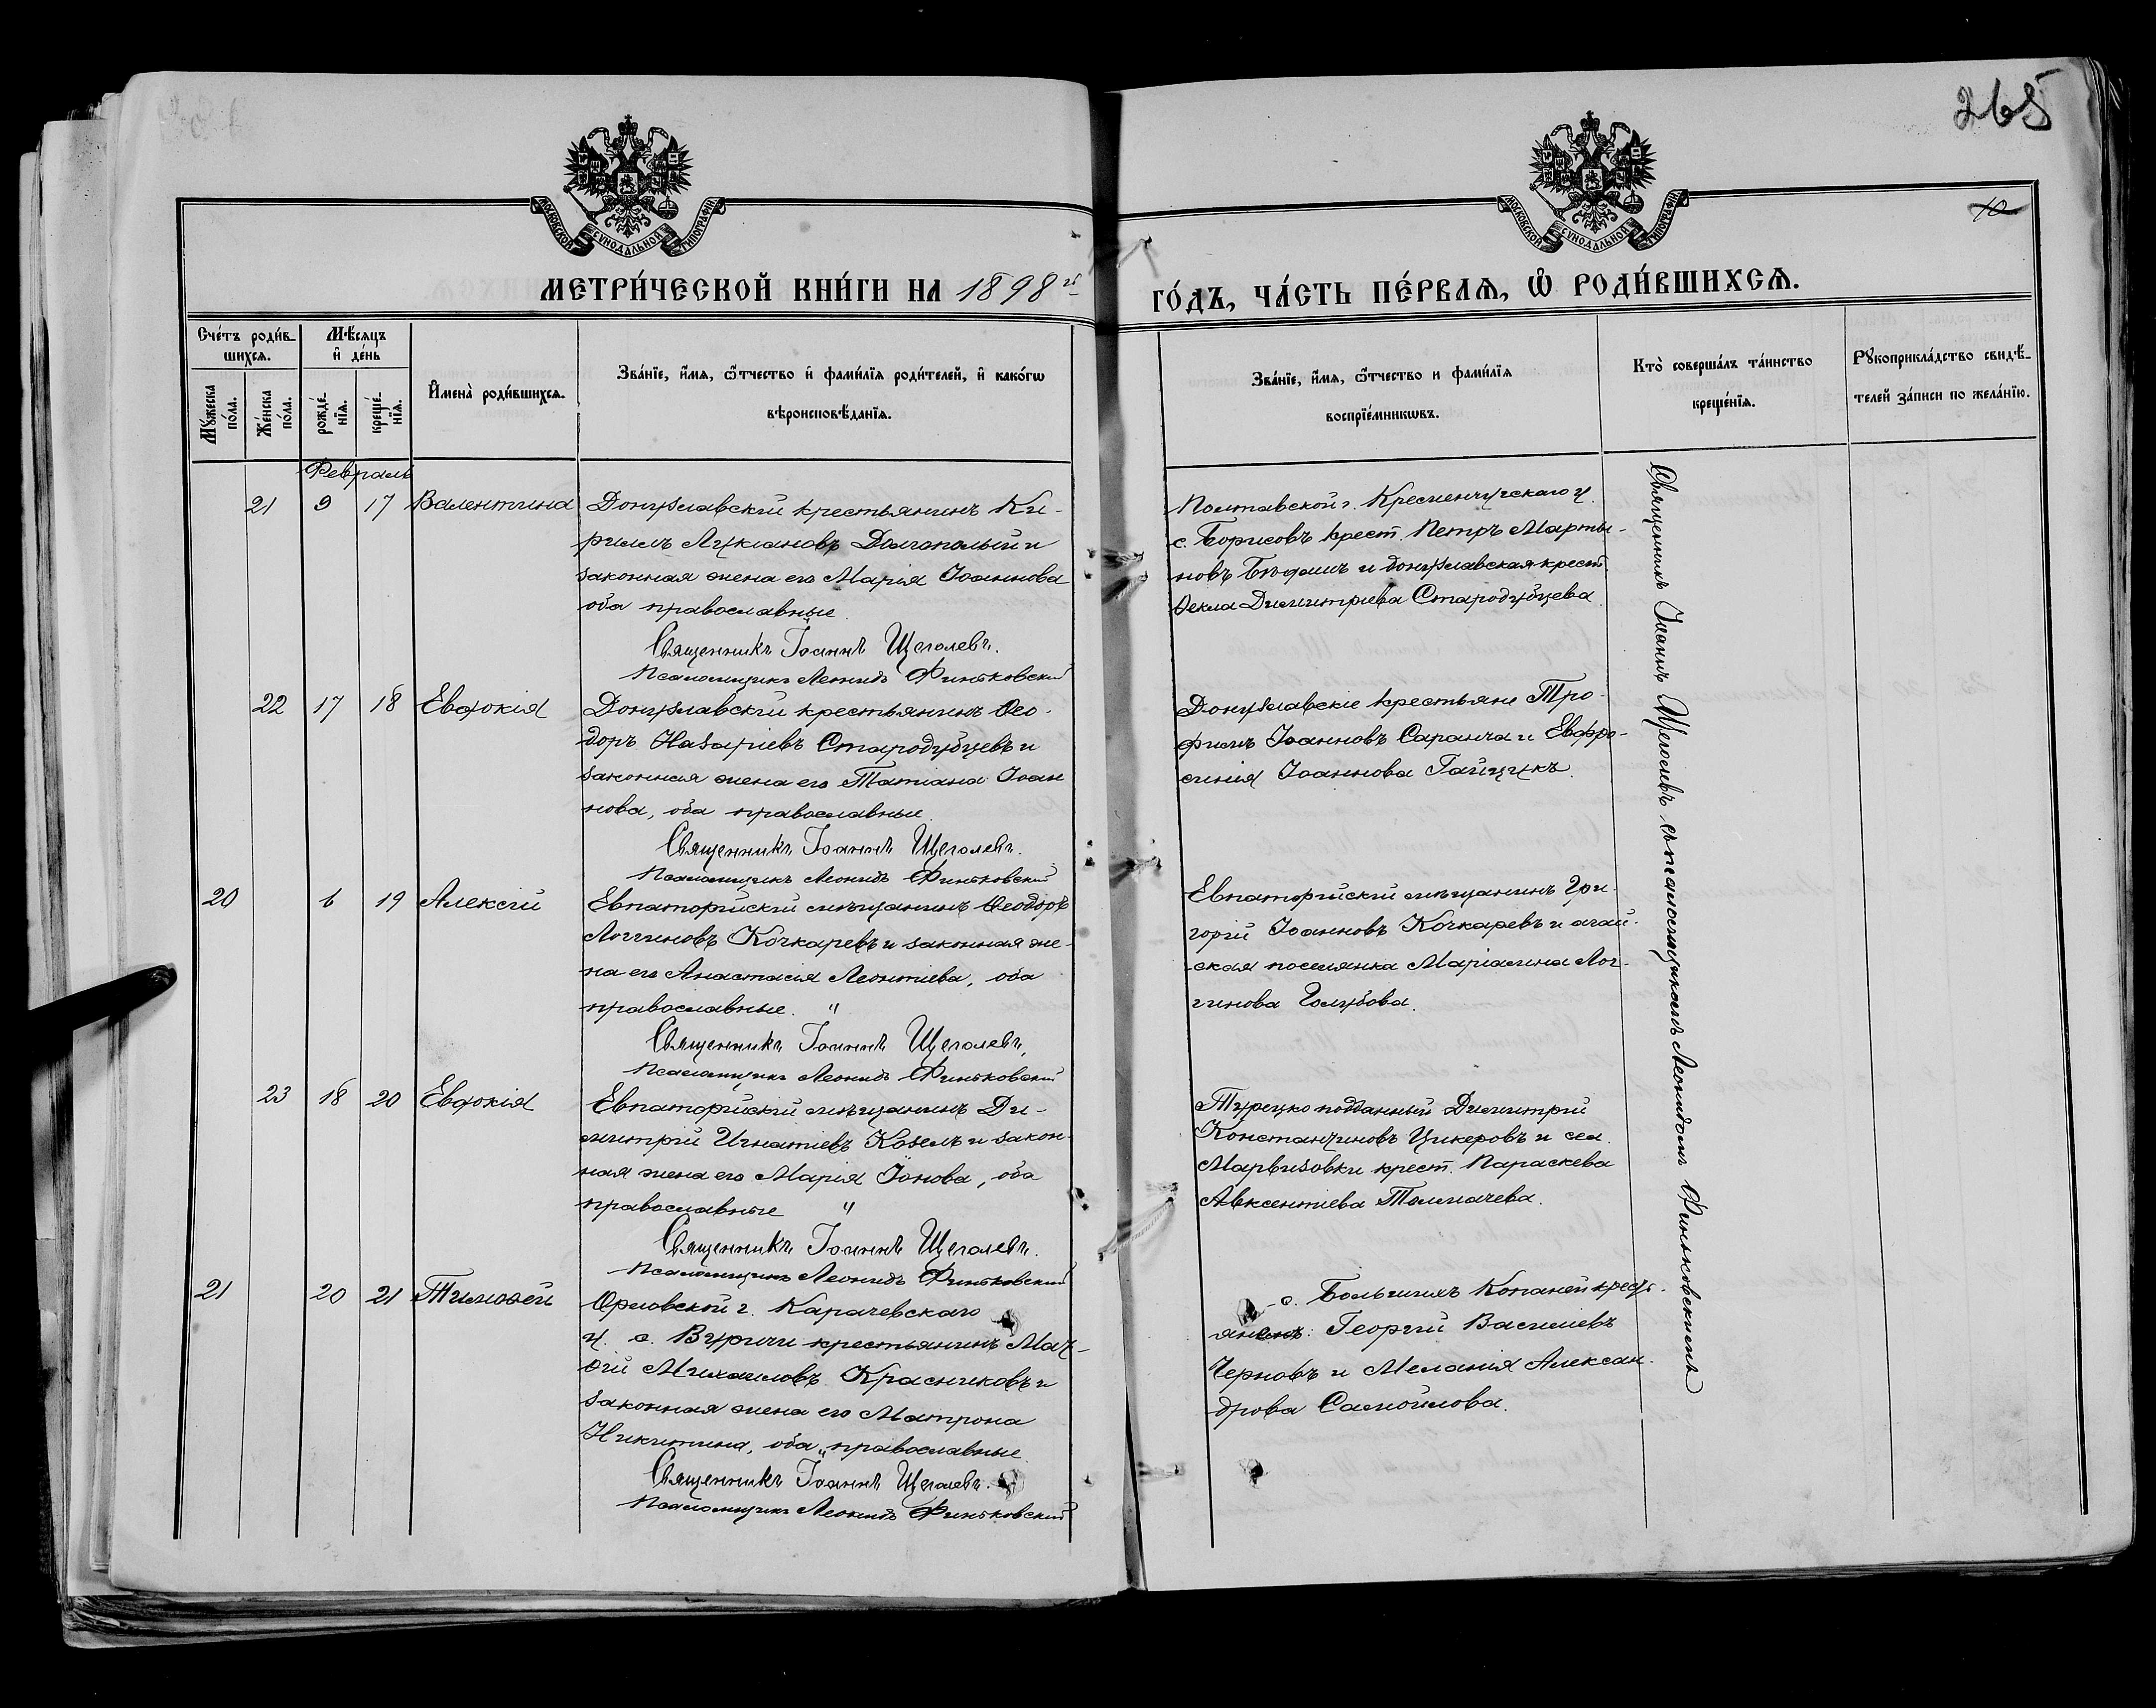 265
10
МОСКОВСКОЙ СѴНОДАЛЬНОЙ ТИПОГРАФІИ
МОСКОВСКОЙ СѴНОДАЛЬНОЙ ТИПОГРАФІИ
МЕТРИ́ЧЕСКОЙ КНИ́ГИ НА 1898 й ГО́ДЪ, ЧА́СТЬ ПЕ́РВАѦ, Ѡ РОДИ́ВШИХСѦ.
Сче́тъ роди́в-
шихсѧ.
Мѣ́сѧцъ
и҆ де́нь
Мꙋ́жеска
по́ла.
Же́нска
по́ла.
рожде́-
нїѧ.
креще́-
нїѧ.
И҆мена̀ роди́вшихсѧ.
Зва́нїе, и҆́мѧ, ѻ҆́тчество и҆ фами́лїѧ роди́телей, и҆ како́гѡ
вѣроисповѣ́данїѧ.
Зва́нїе, и҆́мѧ, ѻ҆́тчество и фами́лїѧ
воспрїе́мникѡвъ.
Кто̀ соверша́лъ та́инство
креще́нїѧ.
Рꙋкоприкла́дство свидѣ́-
телей за́писи по жела́нїю.
Февраль
21 9 17 Валентина
Донузлавскій крестьянинъ Ки-
риллъ Лукіановъ Долгополый и
законная жена его Марія Іоаннова
оба православные.
Священникъ Іоаннъ Щеголевъ.
Псаломщикъ Леонидъ Финьковский
Полтавской г. Кременчугскаго у.
с. Борисовъ крест. Петръ Марты-
новъ и донузлавская крест.
Ѳекла Димитріева Стародубцева
22 17 18 Евдокія
Донузлавскій крестьянинъ Ѳео-
доръ Назаріевъ Стародубцевъ и
законная жена его Татіана Іоан
нова, оба православные
Священникъ Іоаннъ Щеголевъ.
Псаломщикъ Леонидъ Финьковский
Донузлавскіе крестьяне Тро-
фимъ Іоанновъ Саранча и Евфро-
синія Іоаннова Гайцукъ.
20 6 19 Алексій
Евпаторійскій мѣщанинъ Ѳеодоръ
Логгиновъ Кочкаревъ и законная же-
на его Анастасія Леонтіева, оба
православные. "
Священникъ Іоаннъ Щеголевъ,
Псаломщикъ Леонидъ Финьковский
Евпаторійскій мѣщанинъ Гри-
горій Іоанновъ Кочкаревъ и агай-
ская поселянка Маріамна Лог-
гинова Голубова.
23 18 20 Евдокія
Евпаторійскій мѣщанинъ Ди-
митрій Игнатіевъ Козелъ и закон-
ная жена его Марія Іонова, оба
православные "
Священникъ Іоаннъ Щеголевъ.
Псаломщикъ Леонидъ Финьковский
Турецкоподданный Димитрій
Константиновъ Цикеровъ и сел.
крест. Параскева
Авксентіева Толмачева.
21 20 21 Тимоѳей
Орловской г. Карачевскаго
у. с. крестьянинъ Мат-
ѳій Михаиловъ Красниковъ и
законная жена его Матрона
Никитина, оба православные.
Священникъ Іоаннъ Щеголевъ.
Псаломщикъ Леонидъ Финьковский
с. Большихъ Копаней кресть-
янинъ Георгій Василіевъ
Черновъ и Меланія Алексан-
дрова Самойлова.
Священникъ Іоаннъ Щеголевъ съ псаломщикомъ Леонидомъ Финьковскимъ